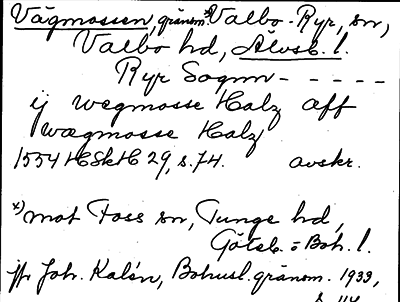 Vågmossen, gränsm.*) Valbo-Ryr, sn,
Valbo hd, Älvsb. l.
Ryr Sognn - - - - -
ij wegmosse Halz aff
wægmosse Halz
1554 HSkH 29, s. 74. avskr.
*) mot Foss sn, Tunge hd,
Götebo. o Boh. l.
jfr Joh. Kalén, Bohusl. gränsm. 1933,
s. 114